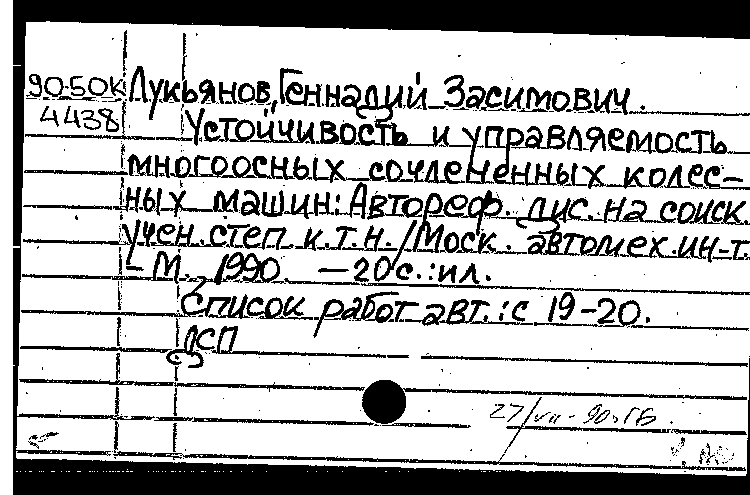 90-50К Лукьянов, Геннадий Засимович.
4438 Устойчивость и управляемость
многоосных сочлененных колес-
ных машин: Автореф. дис. на соиск.
учен. степ к.т.н. / Моск. автомех. ин-т.
- М., 1990. — 20 с.: ил.
Список работ авт.: с 19-20.
ДСП
27/VII-90. ГБ